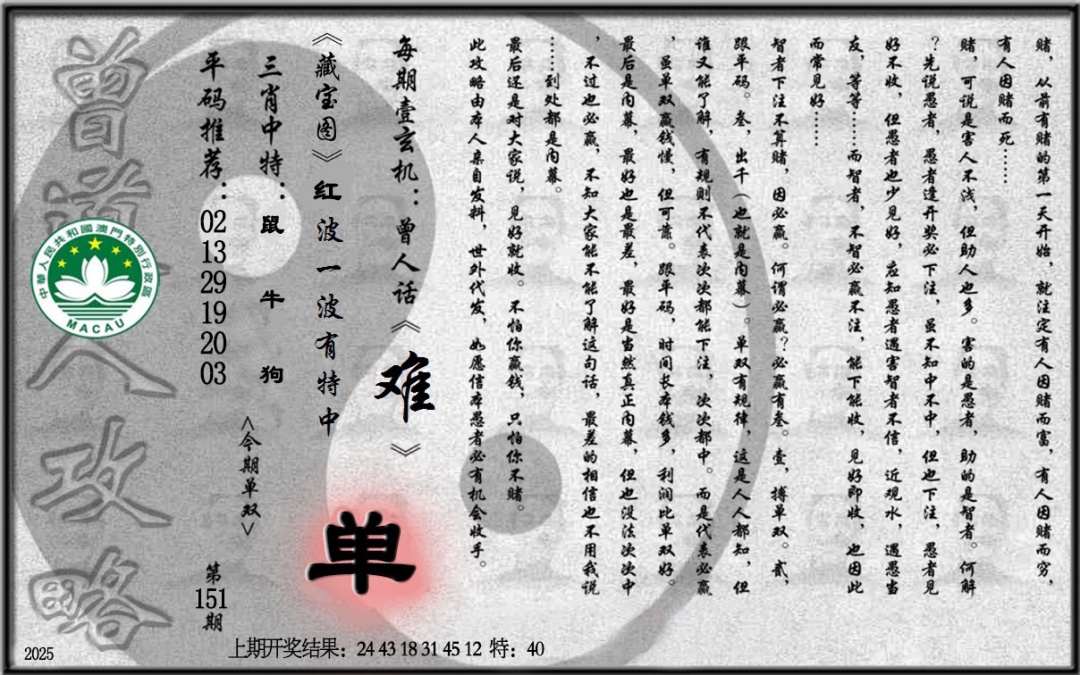 赌，从前有赌的第一天开始，就注定有人因赌而富，有人因赌而穷，
有人因赌而死……
赌，可说是害人不浅，但助人也多。害的是愚者，助的是智者。何解
？先说愚者，愚者逢开奖必下注，虽不知中不中，但也下注，愚者见
好不收，但愚者也少见好，应知愚者遇害智者不信，近观水，遇愚当
友，等等……而智者，不智必赢不注，能下能收，见好即收，也因此
而常见好……
智者下注不算赌，因必赢。何谓必赢？必赢有叁。壹，搏单双。贰，
跟平码。叁，出千（也就是内幕）。单双有规律，这是人人都知，但
谁又能了解，有规则不代表次次都能下注，次次都中。而是代表必赢
，虽单双赢钱慢，但可靠。跟平码，时间长本钱多，利润比单双好。
最后是内幕，最好也是最差，最好是当然真正内幕，但也没法次次中
，不过也必赢，不知大家能不能了解这句话，最差的相信也不用我说
……到处都是内幕。
最后还是对大家说，见好就收。不怕你赢钱，只怕你不赌。
此攻略由本人亲自发料，世外代发，如愿信本愚者必有机会收手。
每期壹玄机：曾人话《难》
《藏宝图》红波一波有特中
三肖中特：鼠 牛 狗
平码推荐：02 13 29 19 20 03
<今期单双>
单
第151期
曾道人攻略
中華人民共和國澳門特別行政區
MACAU
2025
上期开奖结果：24 43 18 31 45 12 特：40